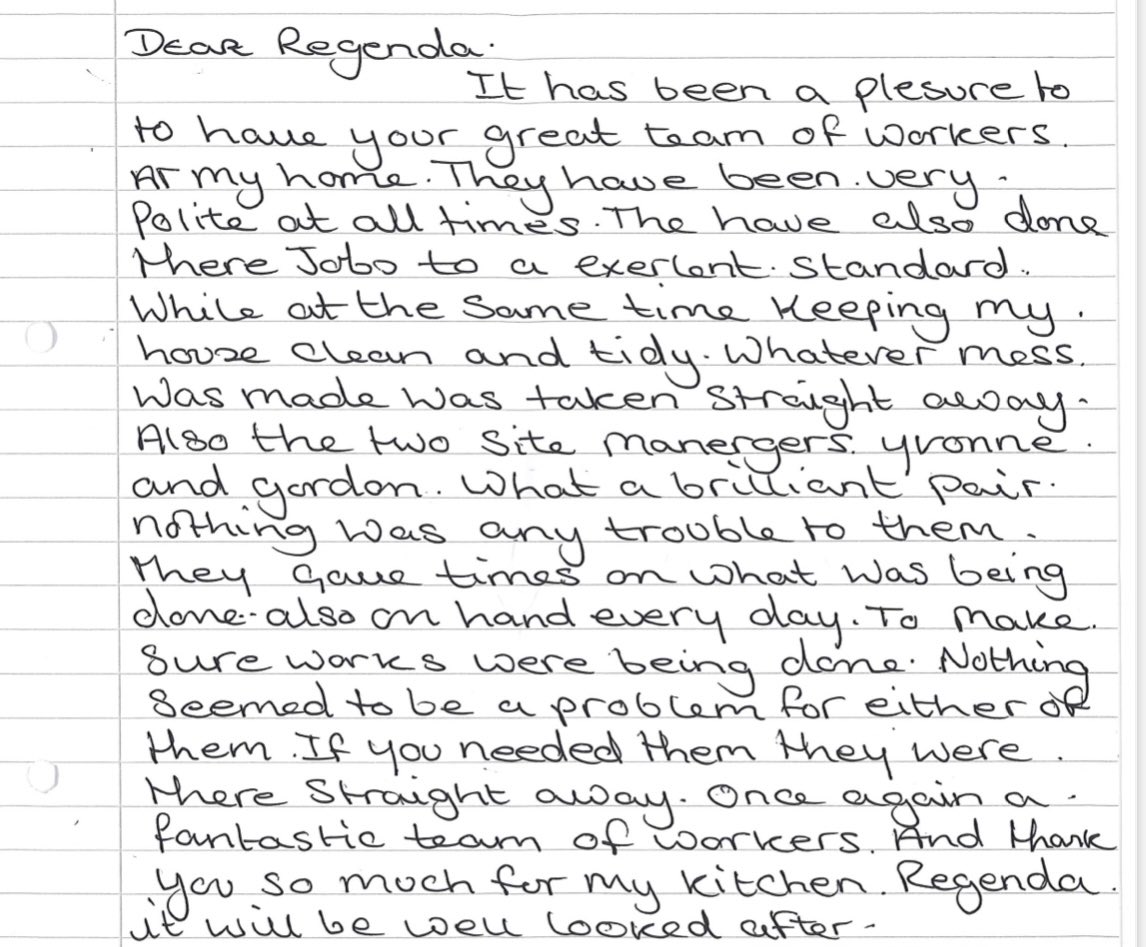 Dear Regenda.
It has been a plesure to
to have your great team of workers.
At my home. They have been. very.
Polite at all times. The have also done
there Jobs to a exerlent. Standard.
While at the Same time Keeping my.
house Clean and tidy. Whatever mess.
Was made was taken Straight away.
Also the two Site manergers. yvonne.
and gordon. What a brilliant pair.
nothing was any trouble to them.
they gave times on what was being
done. also on hand every day. To make.
Sure works were being done. Nothing
Seemed to be a problem for either of
them. If you needed them they were.
there Straight away. Once again a.
fantastic team of workers. And thank
you so much for my kitchen. Regenda.
it will be well looked after.